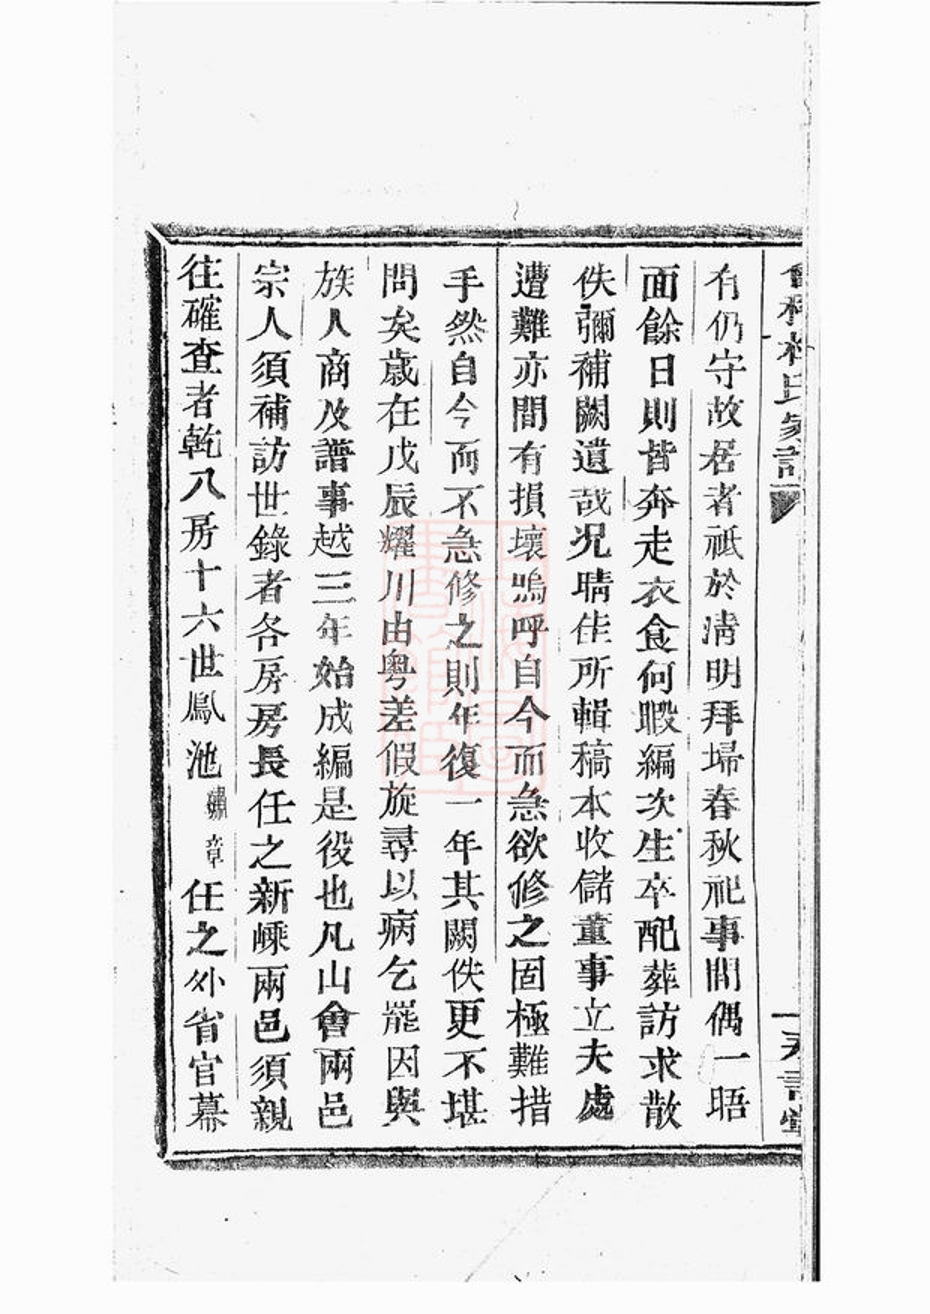 有仍守故居者祗於清明拜埽春秋祀事間偶一晤
面餘日則皆奔走衣食何暇編次生卒配葬訪求散
佚彌補闕遺哉况晴佳所輯稿本收儲董事立夫處
遭難亦間有損壞嗚呼自今而急欲修之固極難措
手然自今而不急修之則年復一年其闕佚更不堪
問矣歲在戊辰耀川由粵差假旋尋以病乞罷因與
族人商及譜事越三年始成編是役也凡山會兩邑
宗人須補訪世錄者各房房長任之新嵊兩邑須親
往確查者乾八房十六世鳳池 章任之外省官幕